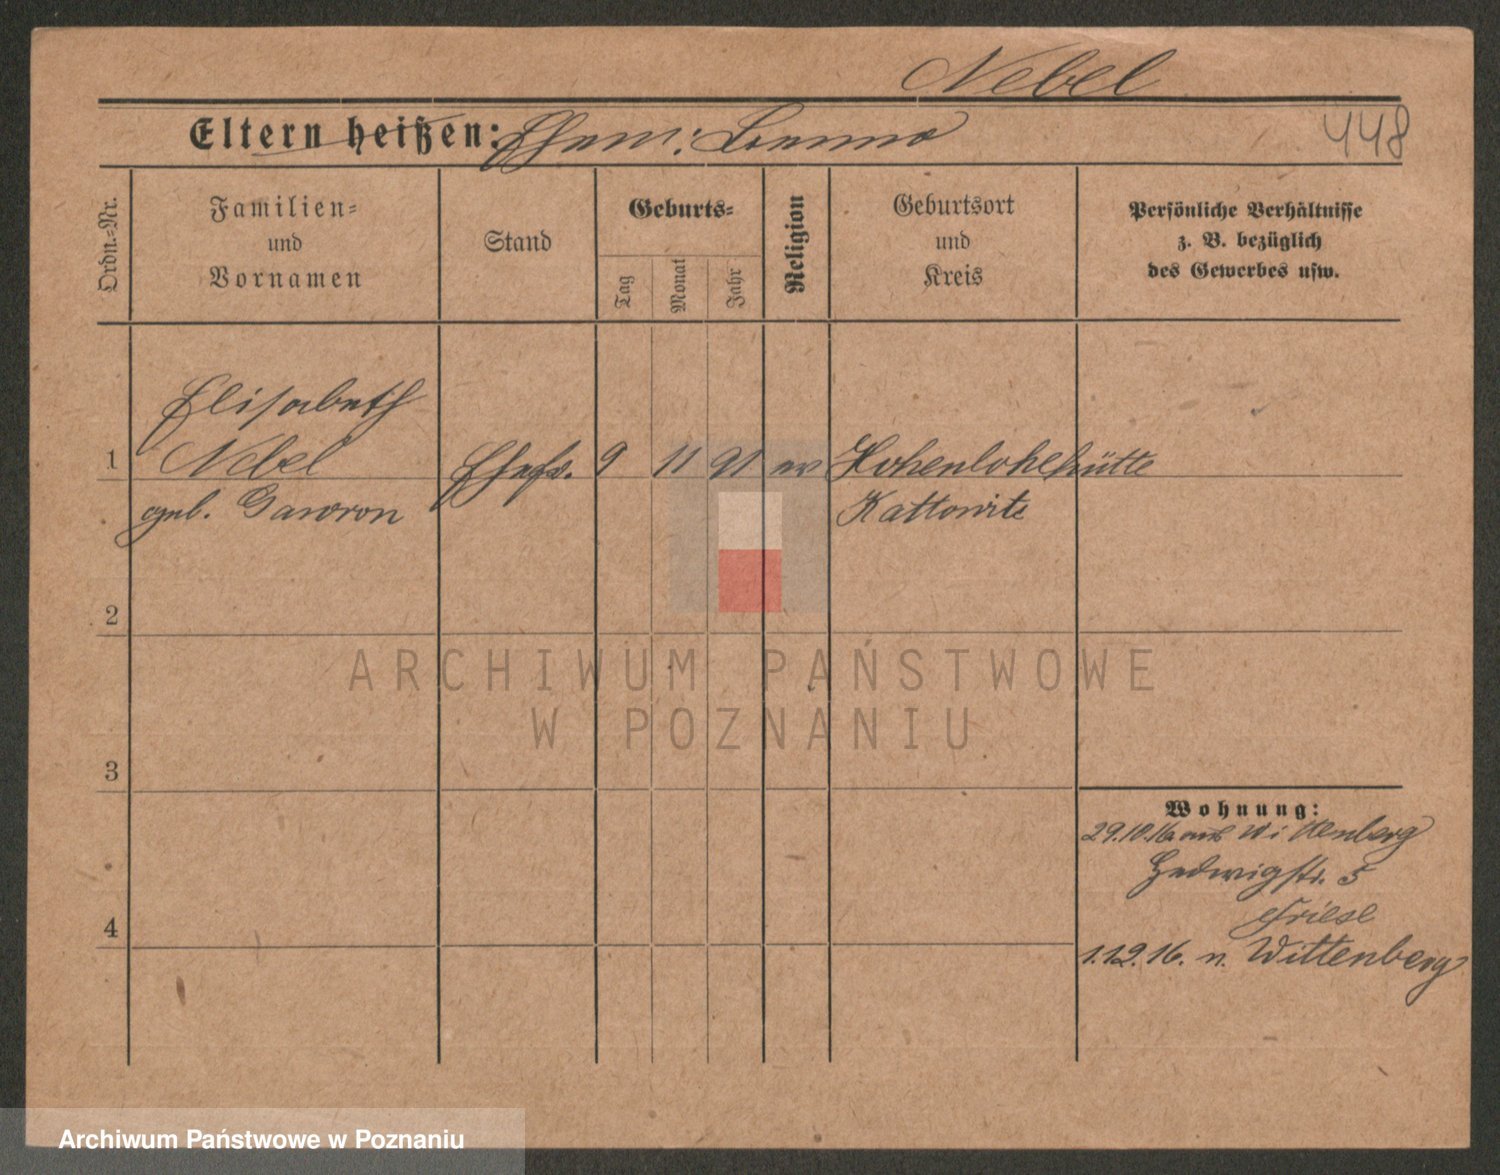 Nebel
Eltern heißen: Ehem: Benno
448
Ordn.-Nr.
Familien-
und
Vornamen
Stand
Geburts-
Tag
Monat
Jahr
Religion
Geburtsort
und
Kreis
Persönliche Verhältnisse
z. B. bezüglich
des Gewerbes usw.
Elisabeth
1 Nebel Ehefr. 9 11 91 ev Hohenlohehütte
geb. Gawron Kattowitz
2
ARCHIWUM PAŃSTWOWE
W POZNANIU
3
Wohnung:
29.10.16 aus Wittenberg
Hedwigstr. 5
Friese
4
1.12.16. n. Wittenberg
Archiwum Państwowe w Poznaniu